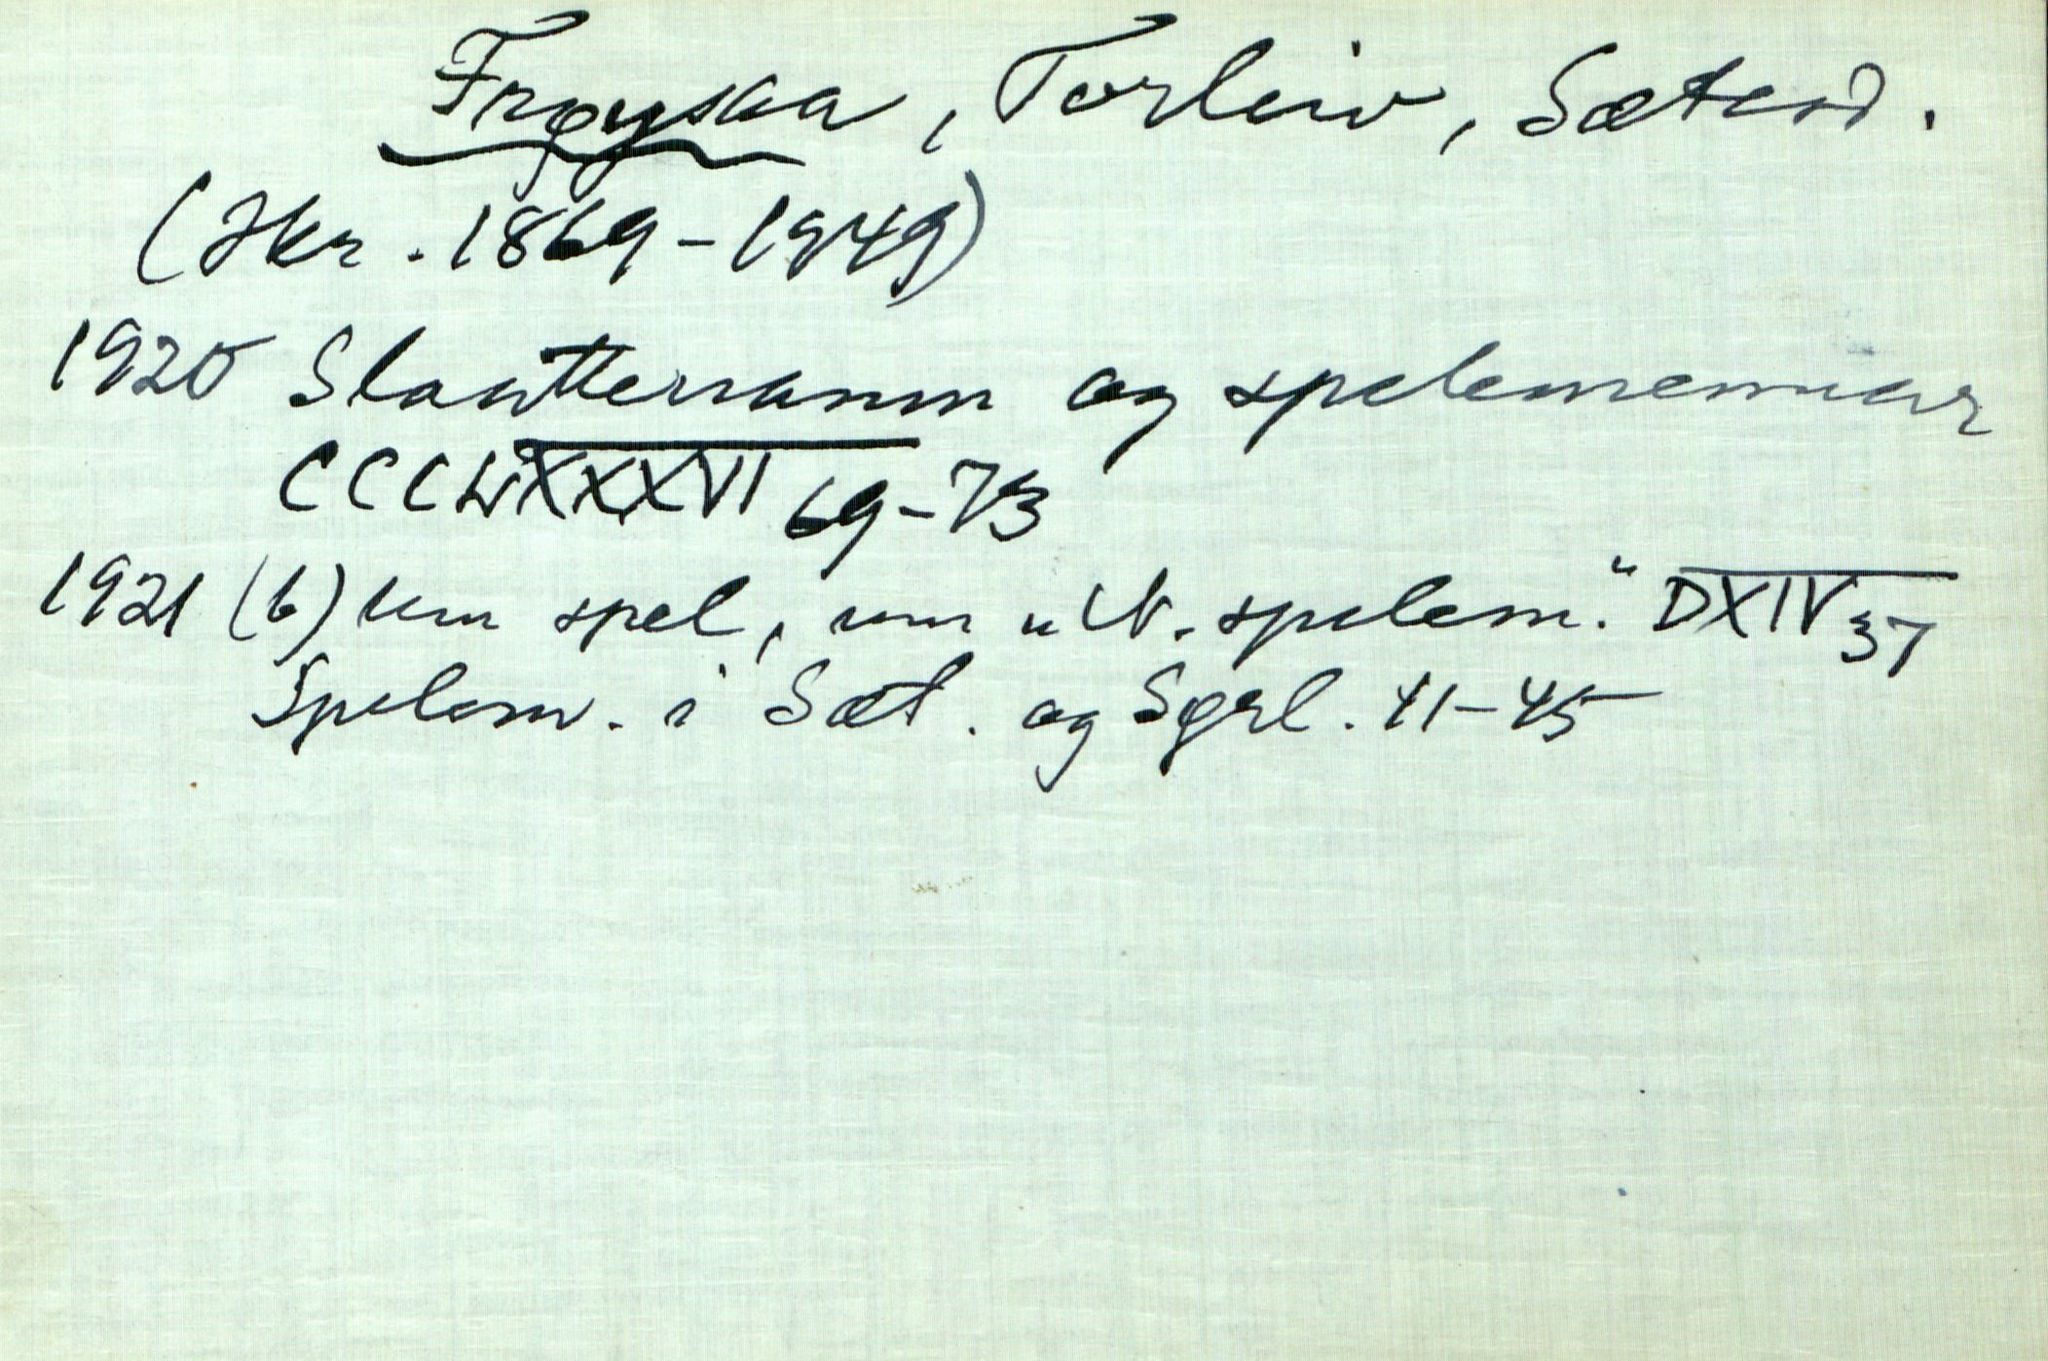 Frøysaa, Torleiv, Sætesd.
(Jkr. 1869-1949)
1920 Slaatterramm og spelemennar
CCCLXXXXVI 69-73
1921 (b) Um spel, um "N. spelem." DXIV 37
Spelem. i Sæt. og Sørl. 41-45